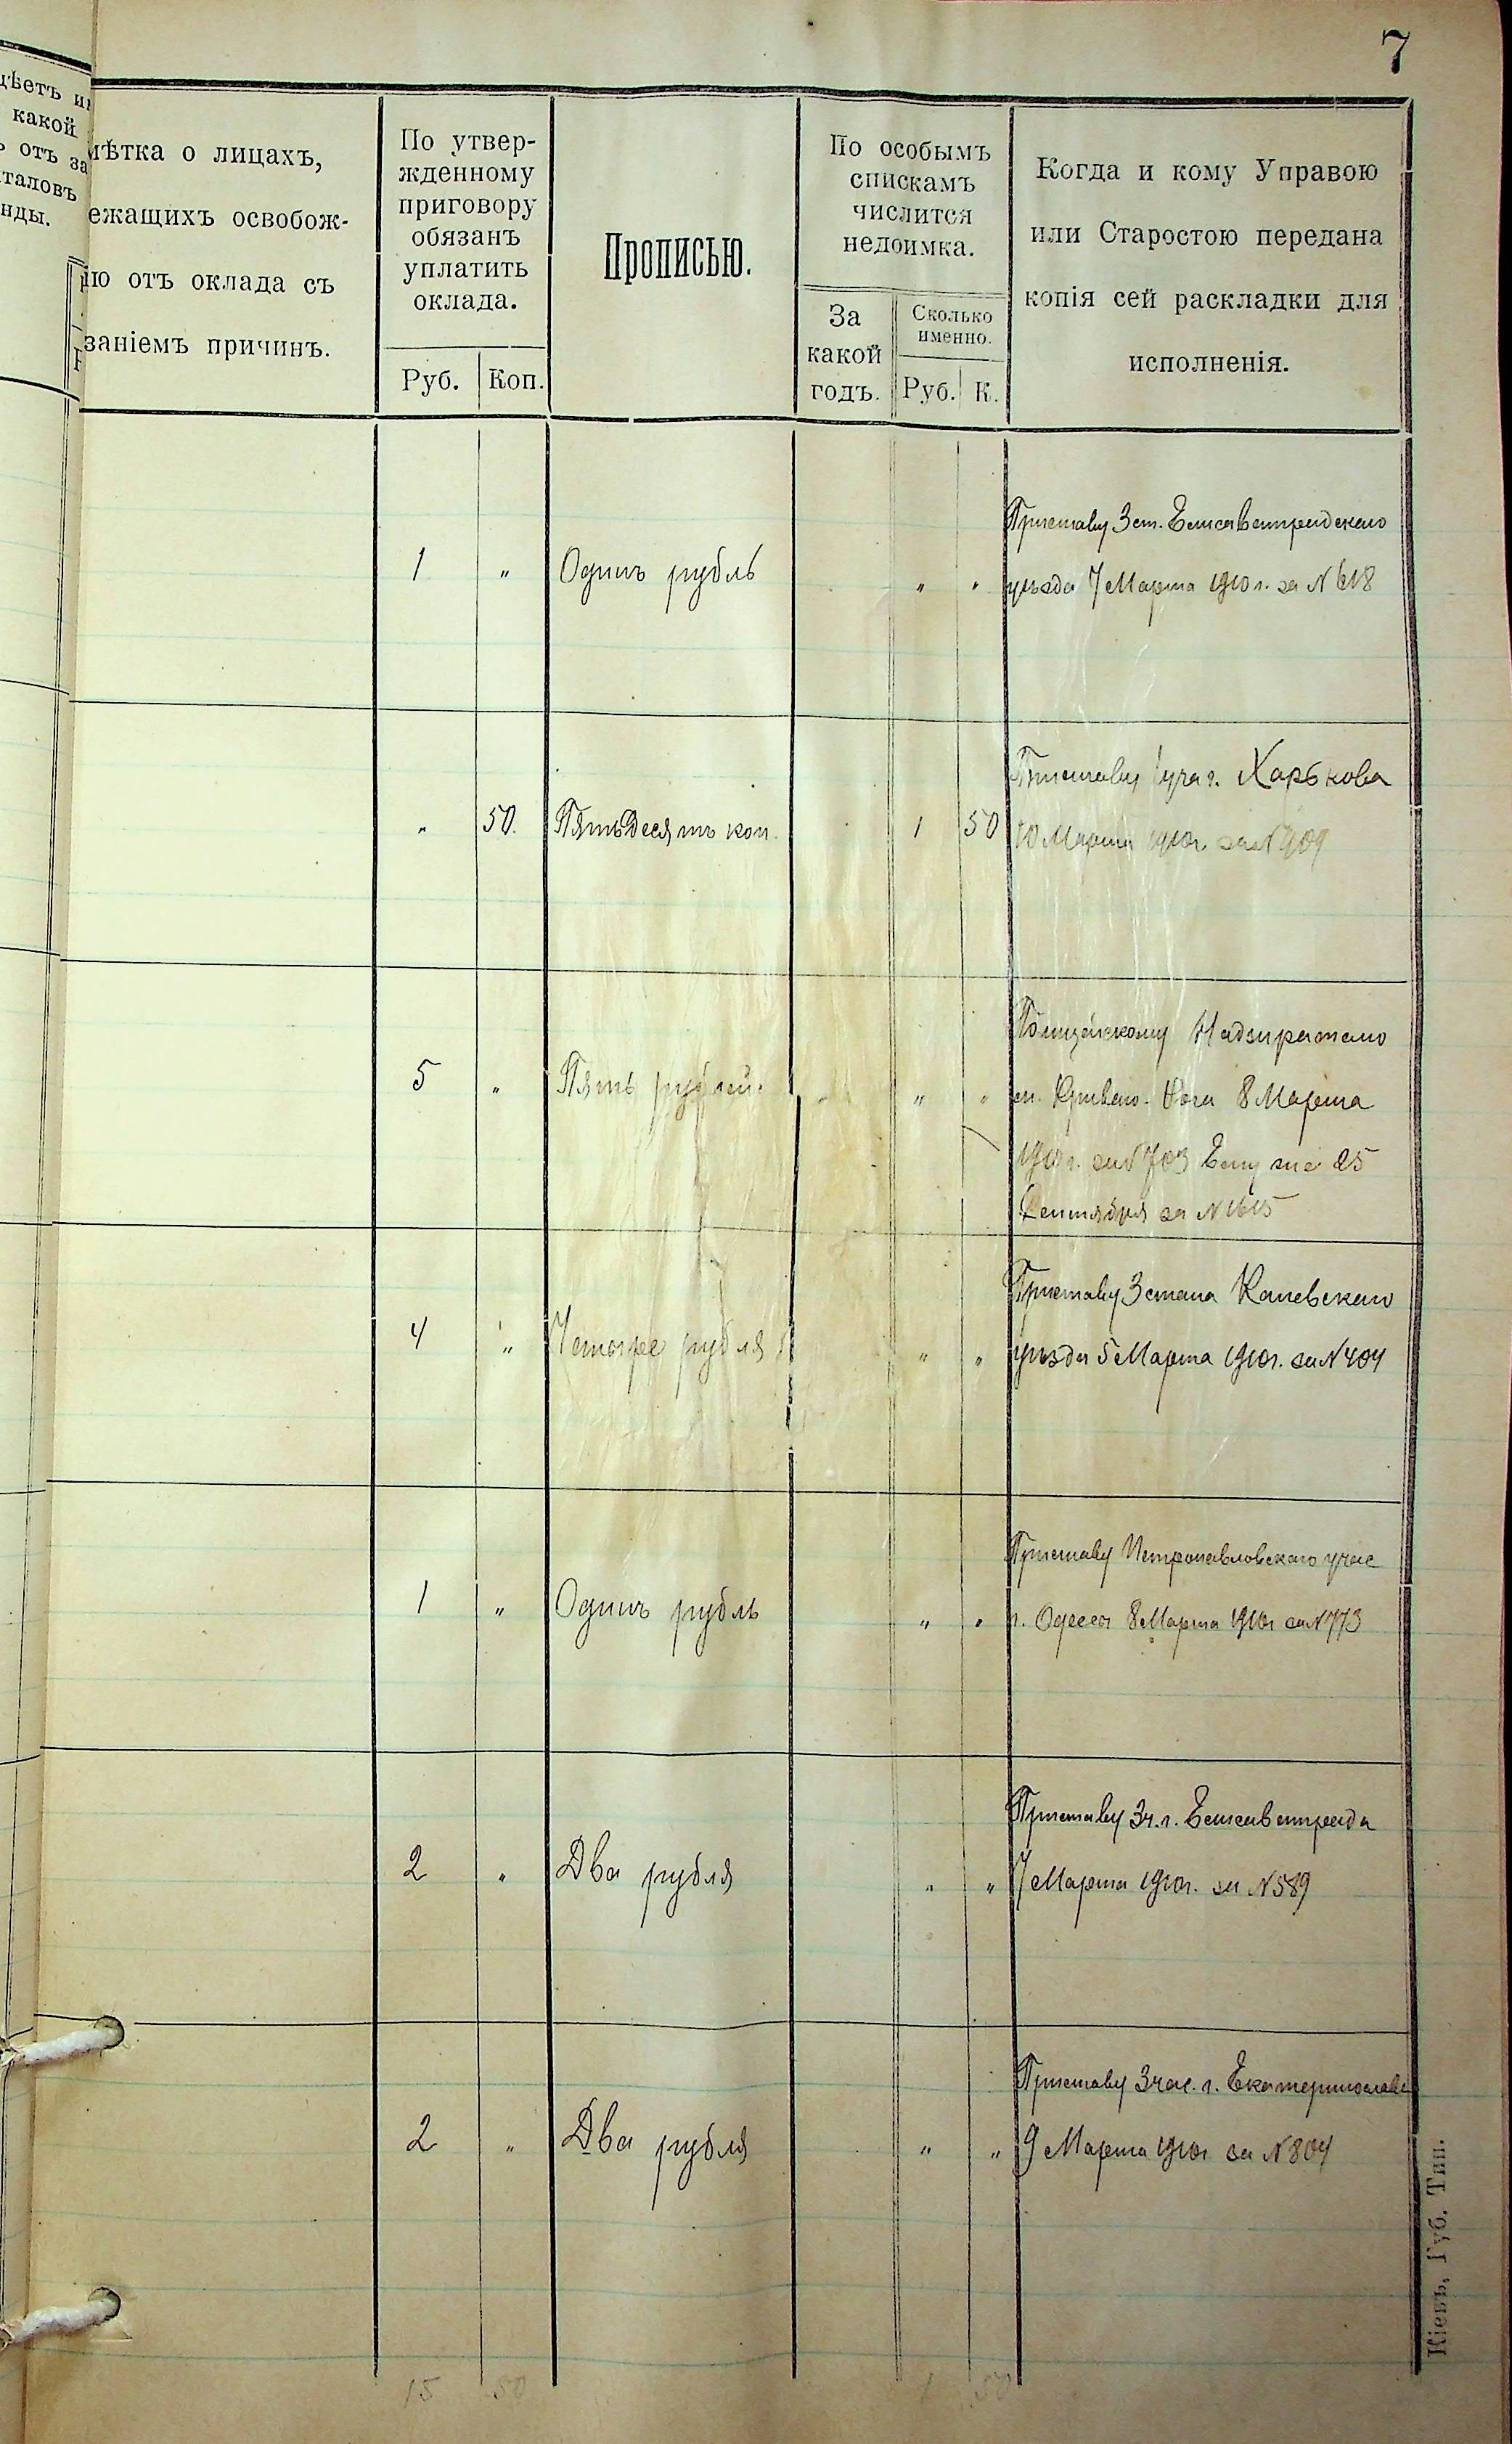 7
цѣетъ и
какой
отъ за
таловъ
нды.
мѣтка о лицахъ,
ежащихъ освобож-
ію отъ оклада съ
заніемъ причинъ.
По утвер-
жденному
приговору
обязанъ
уплатить
оклада.
Руб. Коп.
Прописью.
По особымъ
спискамъ
числится
недоимка.
За
какой
годъ.
Сколько
именно.
Руб. К.
Когда и кому Управою
или Старостою передана
копія сей раскладки для
исполненія.
Приставу 3 ст. Елисаветградскаго
1 " Одинъ рубль " " уѣзда 7 Марта 1910 г. за N 618
Приставу 1 уча г. Харькова
" 50. Пятьдесятъ коп. 1 50 10 Марта 1910 г. за N 909
Полицейскому Надзирателю
5 " Пять рублей. " " м. Кривого-Рога 8 Марта
1910 г. за N 703 Ему же 25
Сентября за N 1615
Приставу 3 стана Каневскаго
4 " Четыре рубля " " уѣзда 5 Марта 1910 г. за N 404
Приставу Петропавловскаго учас
1 " Одинъ рубль " " г. Одессы 8 Марта 1910 г за N 773
Приставу 3 ч. г. Елисаветграда
2 " Два рубля " " 7 Марта 1910 г. за N 589
Приставу 3 час. г. Екатеринослава
2 " Два рубля " " 9 Марта 1910 г за N 804
15 50 1 50
Кіевъ, Губ. Тип.